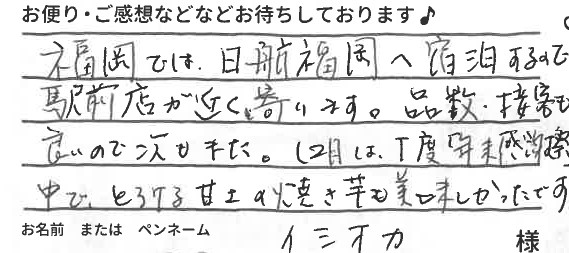 お便り・ご感想などなどお待ちしております♪
福岡では、日航福岡へ宿泊するので
駅前店が近く寄ります。品数・接客も
良いので次もまた。12月は、丁度年末感謝祭
中で、とろける甘土の焼き芋も美味しかったです
お名前 または ペンネーム イシオカ 様